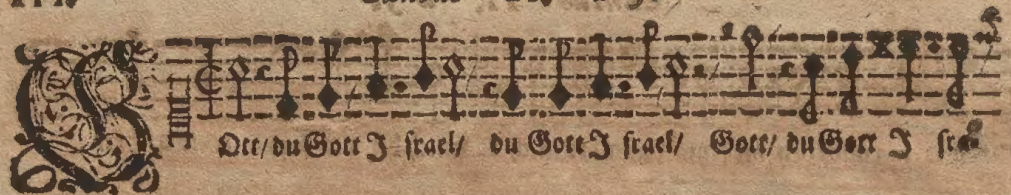 GOtt/ du Gott J srael/ du Gott J srael/ Gott/ du Gott J sra